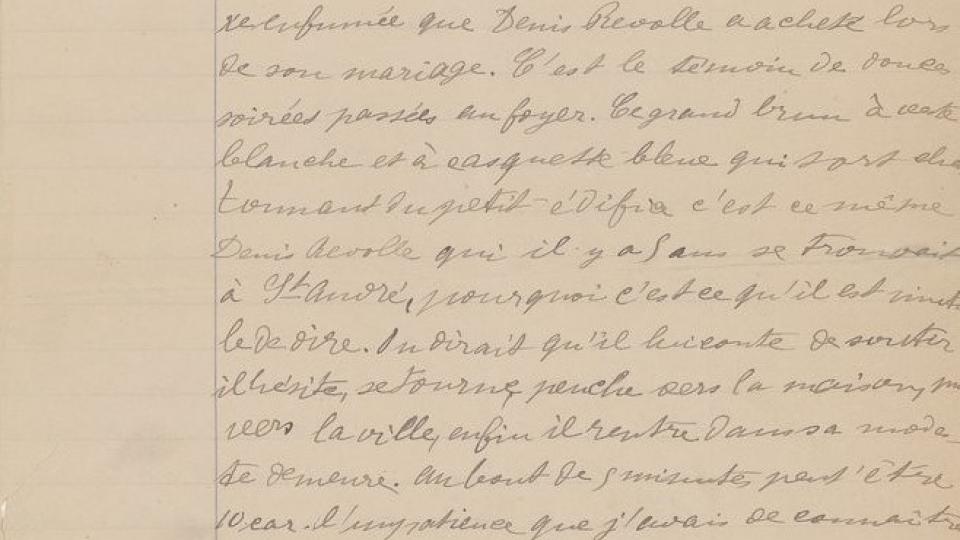 enfumée que Denis Revolle a acheté lors
de son mariage. C'est le témoin de douces
soirées passées au foyer. Ce grand brun à veste
blanche et à casquette bleue qui sort
du petit édifia c'est ce même
Denis Revolle qui il y a 5 ans se trouvait
à St André, pourquoi c'est ce qu'il est inuti
le de dire. On dirait qu'il lui conte de sortir
il hésite, se tourne, penche vers la maison,
vers la ville, enfin il rentre dans sa modes
te demeure. Au bout de 5 minutes, peut'être
10 car l'impatience que j'avais de connaître